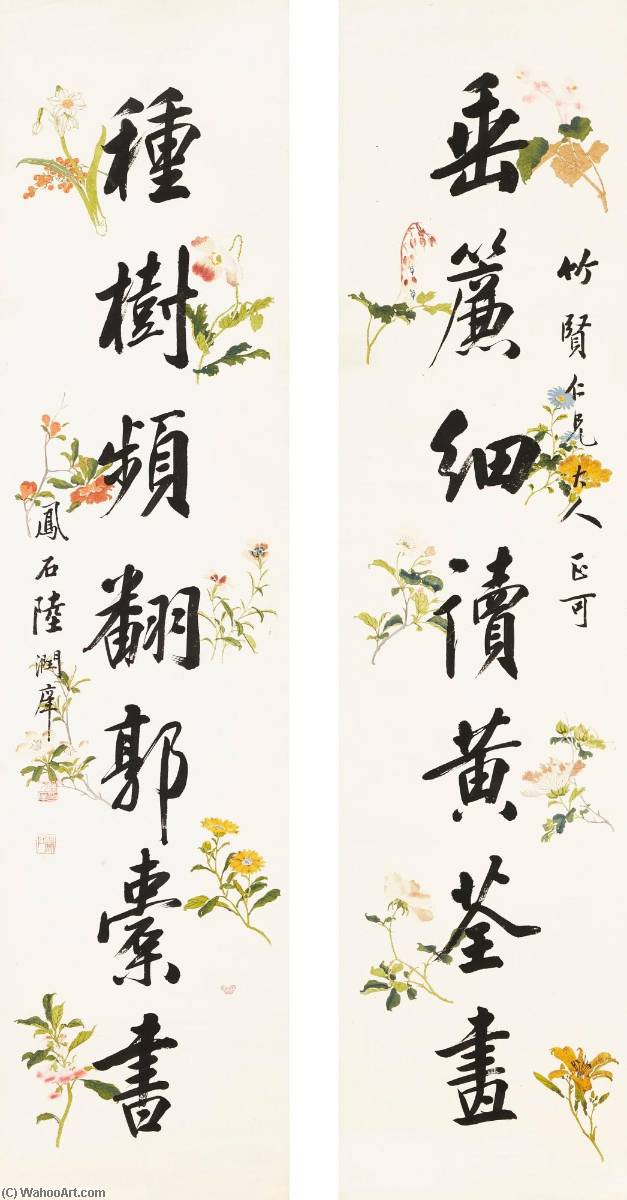 竹賢仁兄大人正可
垂簾細讀黃荃畫
種樹頻翻郭橐書
鳳石陸潤庠
(C) WahooArt.com